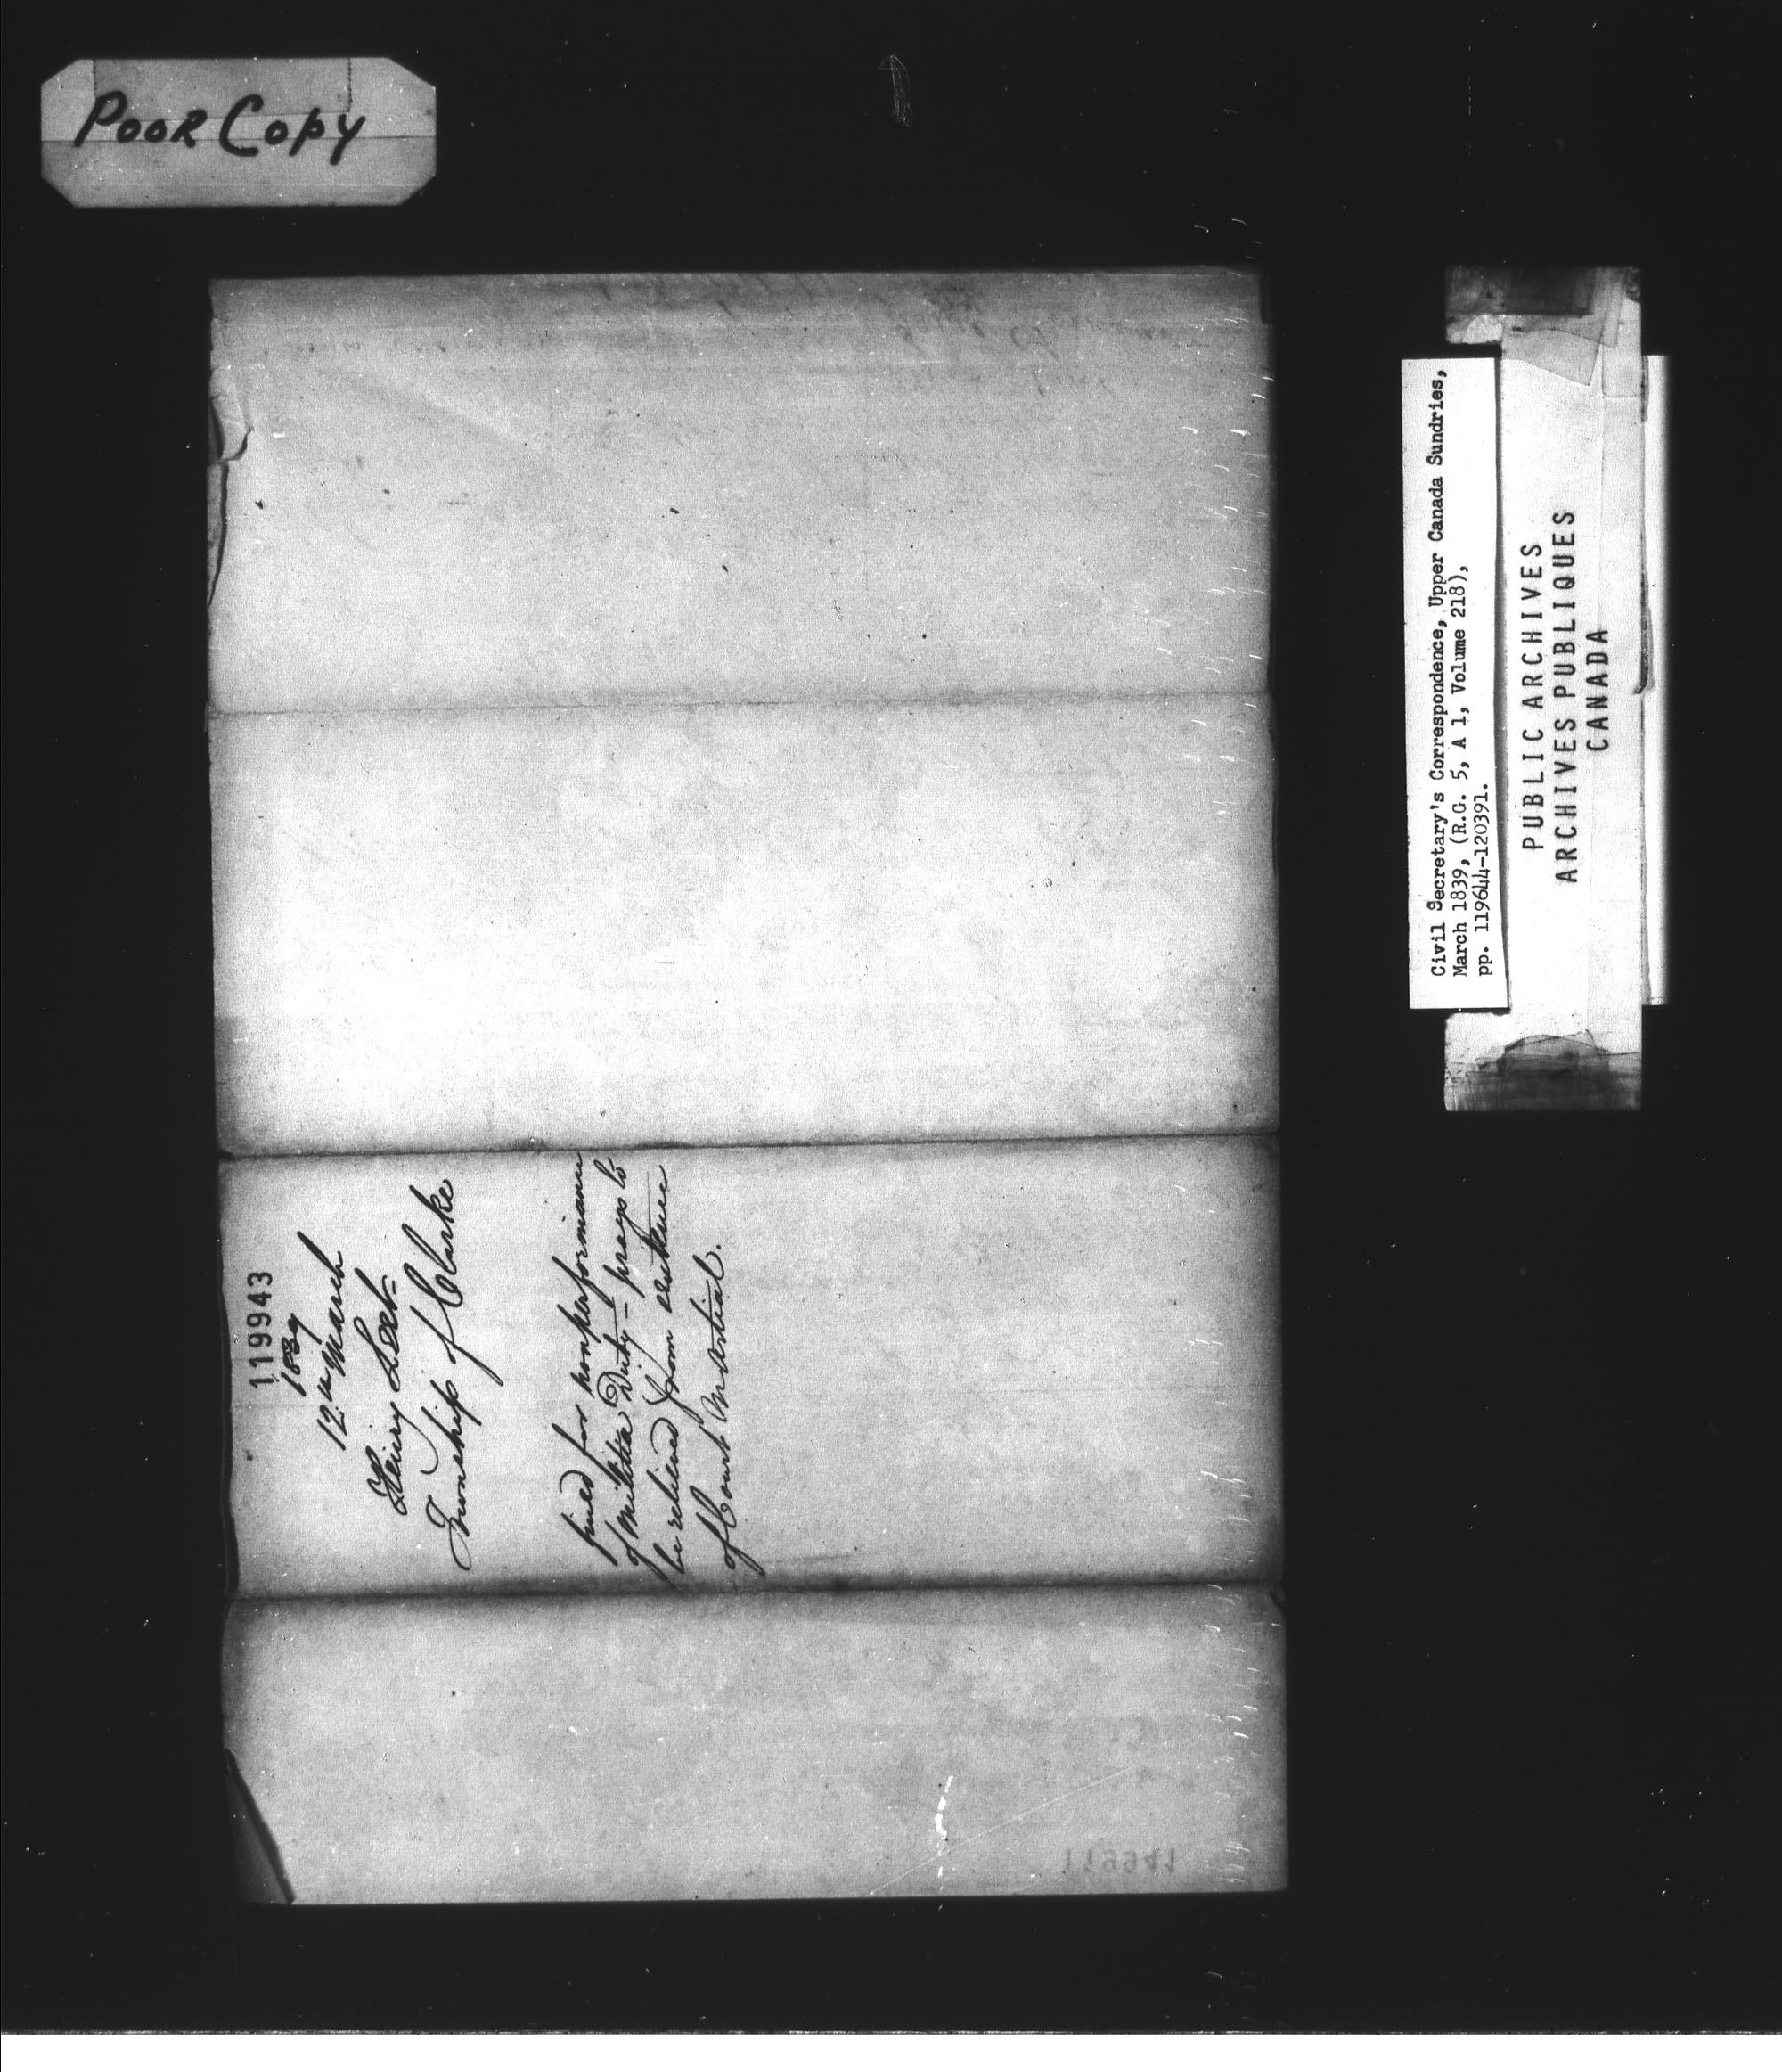 Poor Copy
119943
1839
12th March
Henry
Township of Clarke
fined for nonperformance
of Militia Duty - prays to
be relieved from sentence
of Court Martial.
119941
Civil Secretary's Correspondence, Upper Canada Sundries,
March 1839, (R.G. 5, A 1, Volume 218),
pp. 119644-120391.
PUBLIC ARCHIVES
ARCHIVES PUBLIQUES
CANADA